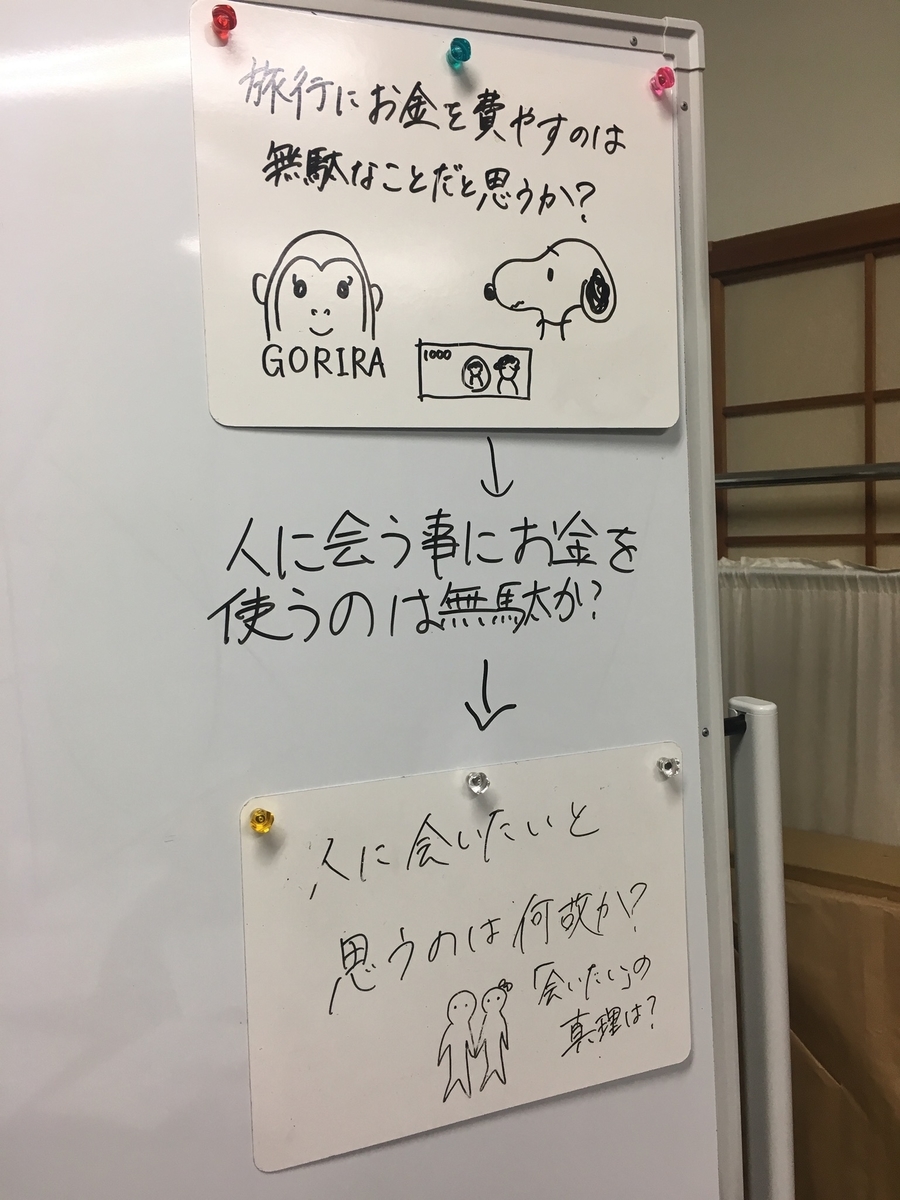 旅行にお金を費やすのは
無駄なことだと思うか?
GORIRA
1000
人に会う事にお金を
使うのは無駄か?
人に会いたいと
思うのは何故か?
「会いたい」の
真理は?